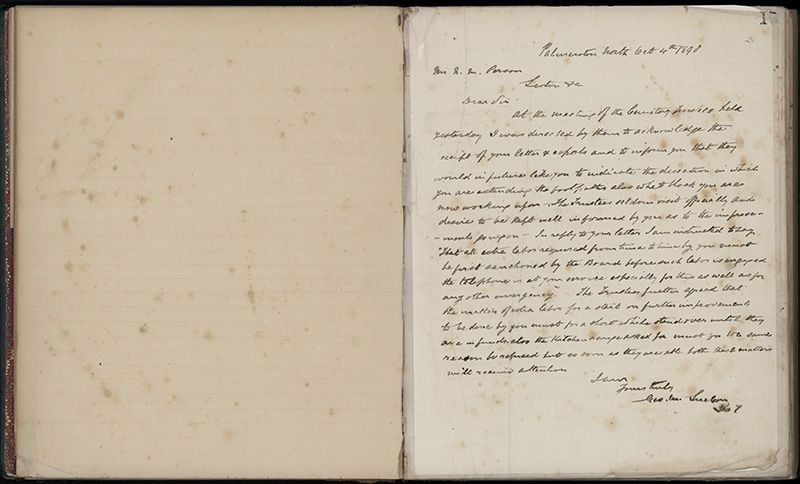 1
Palmerston North Oct 4th 1898
Mr N. M. Person
Sexton &c
Dear Sir
At the meeting of the Cemetery Trustees held
yesterday I was directed by them to acknowledge the
receipt of your letter & reports and to inform you that they
would in future like you to indicate the direction in which
you are extending the footpaths also what block you are
now working upon. The Trustees seldom visit officially and
desire to be kept well informed by you as to the improve-
-ments going on - In reply to your letter I am instructed to say
"That all extra labor required from time to time by you must
be first sanctioned by the Board before such labor is engaged
the telephone is at your service especially for this as well as for
any other emergency" - The Trustees further agreed that
the matter of extra labor for a start on further improvements
to be done by you must for a short while stand over until they
are in funds also the Kitchen range asked for must you the same
reason be refused but as soon as they are able both these matters
will receive attention
I am
Yours truly
Geo. M.